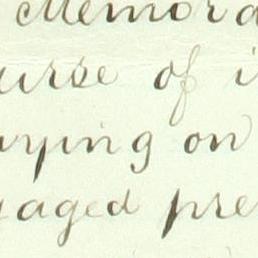 Memora
urse of i
rying on
gaged pre